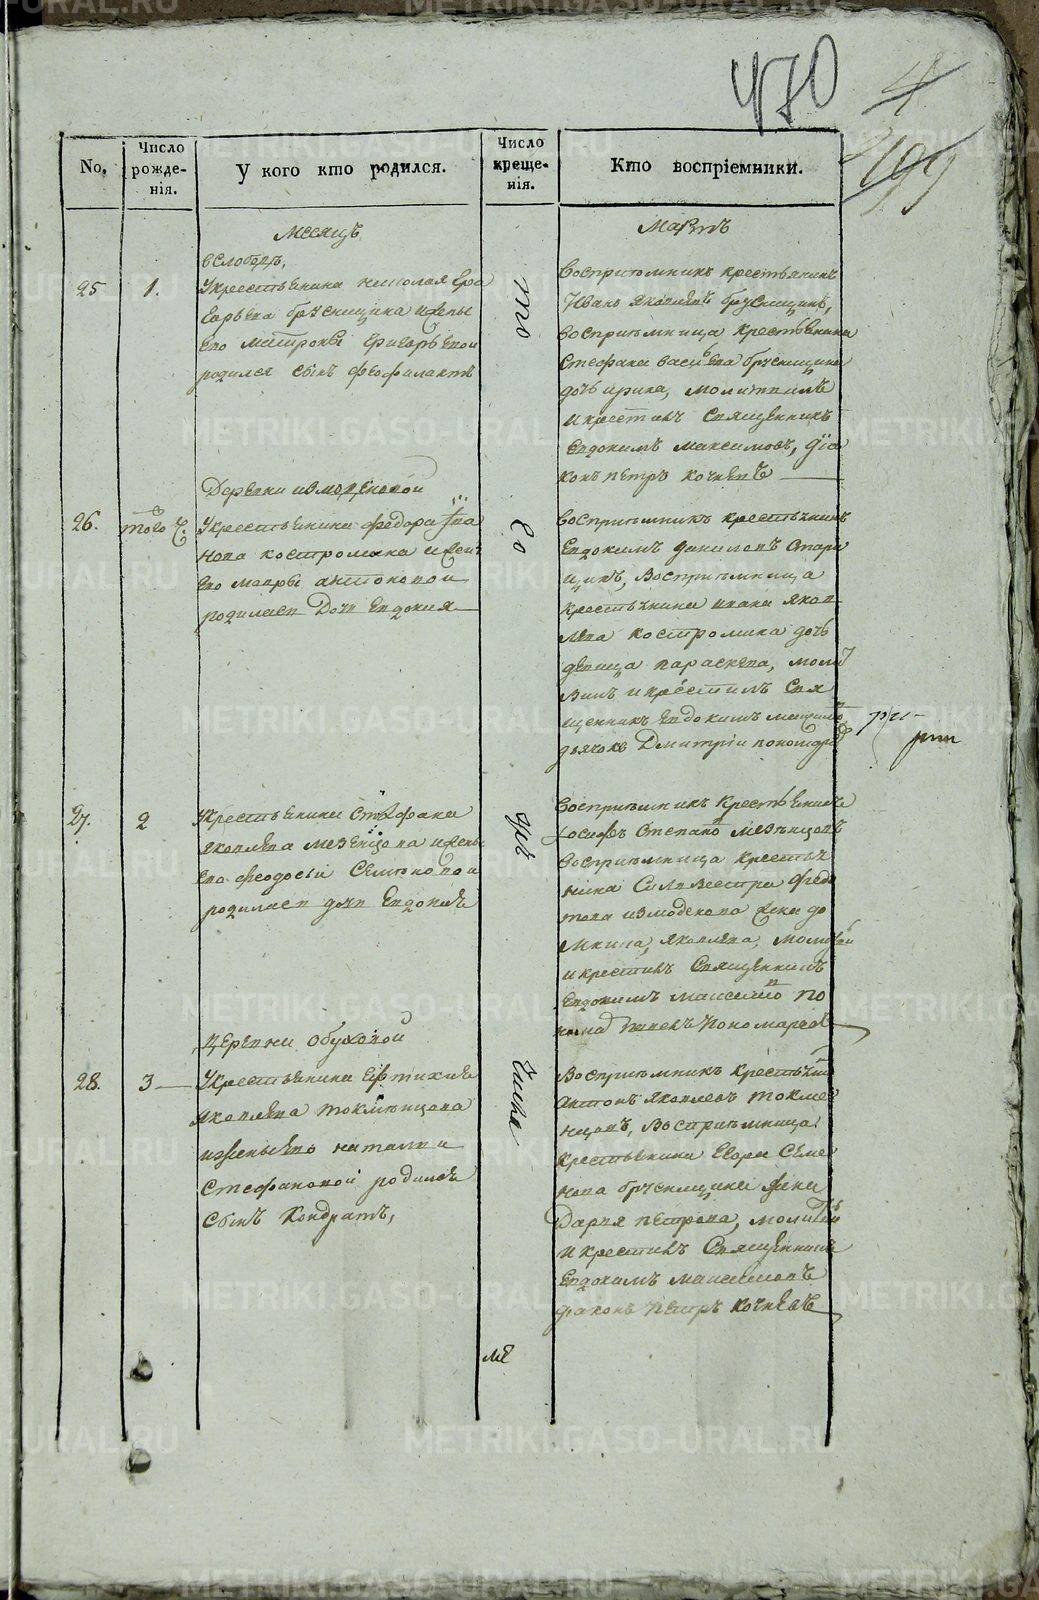 470
No.
Число рожде-нія.
У кого кто родился.
Число креще-нія.
Кто воспріемники.
Месяцъ
Мартъ
вслободе,
25
1.
Укрестьянина николая
брусницина ижены
его матроны григорьевои
родился сынъ феофилактъ
того
Восприемникъ крестьянинъ
Иванъ яковлевъ брусницинъ,
восприемница крестьянина
Стефана васильева брусницина
дочь ирина, молитвилъ
икрестилъ Священникъ
Евдокимъ максимовъ, діа
конъ петръ кочневъ
Деревни измоденовой
26.
того ч.
Укрестьянина федора
нова костромина ижены
его мавры антоновои
родилася Дочь Евдокия
Восприемникъ крестьянинъ
Евдокимъ даниловъ стари
цинъ, Восприемница
крестьянина ивана яков
лева костромина дочь
девица параскева, молит
вилъ икрестилъ Свя
щенникъ Евдокимъ
дьячокъ Дмитріи пономарев
27.
2
Укрестьянина Стефана
яковлева мезенцова ижены
его феодосьи Семеновои
родилася дочь Евдокия
Восприемникъ крестьянинъ
Іосифъ Степано мезенцовъ
Восприемница крестья
нина Сильвестра федо
това измоденова жена до
мнина, яковлева, молитвил
икрестилъ Священникъ
Евдокимъ максимо по
пономарев
деревни обуховой
28.
3
Укрестьянина Ефтихия
яковлева токменцова
ижены его наталии
Стефановой родился
Сынъ Кондратъ,
числа
Восприемникъ крестьянин
антонъ яковлевъ токме
нцовъ, восприемница
крестьянина Егора Семе
нова брусницина жена
Дарья петрова, молитвил
икрестилъ Священникъ
Евдокимъ максимовъ
диаконъ петръ кочневъ
METRIKI.GASO-URAL.RU